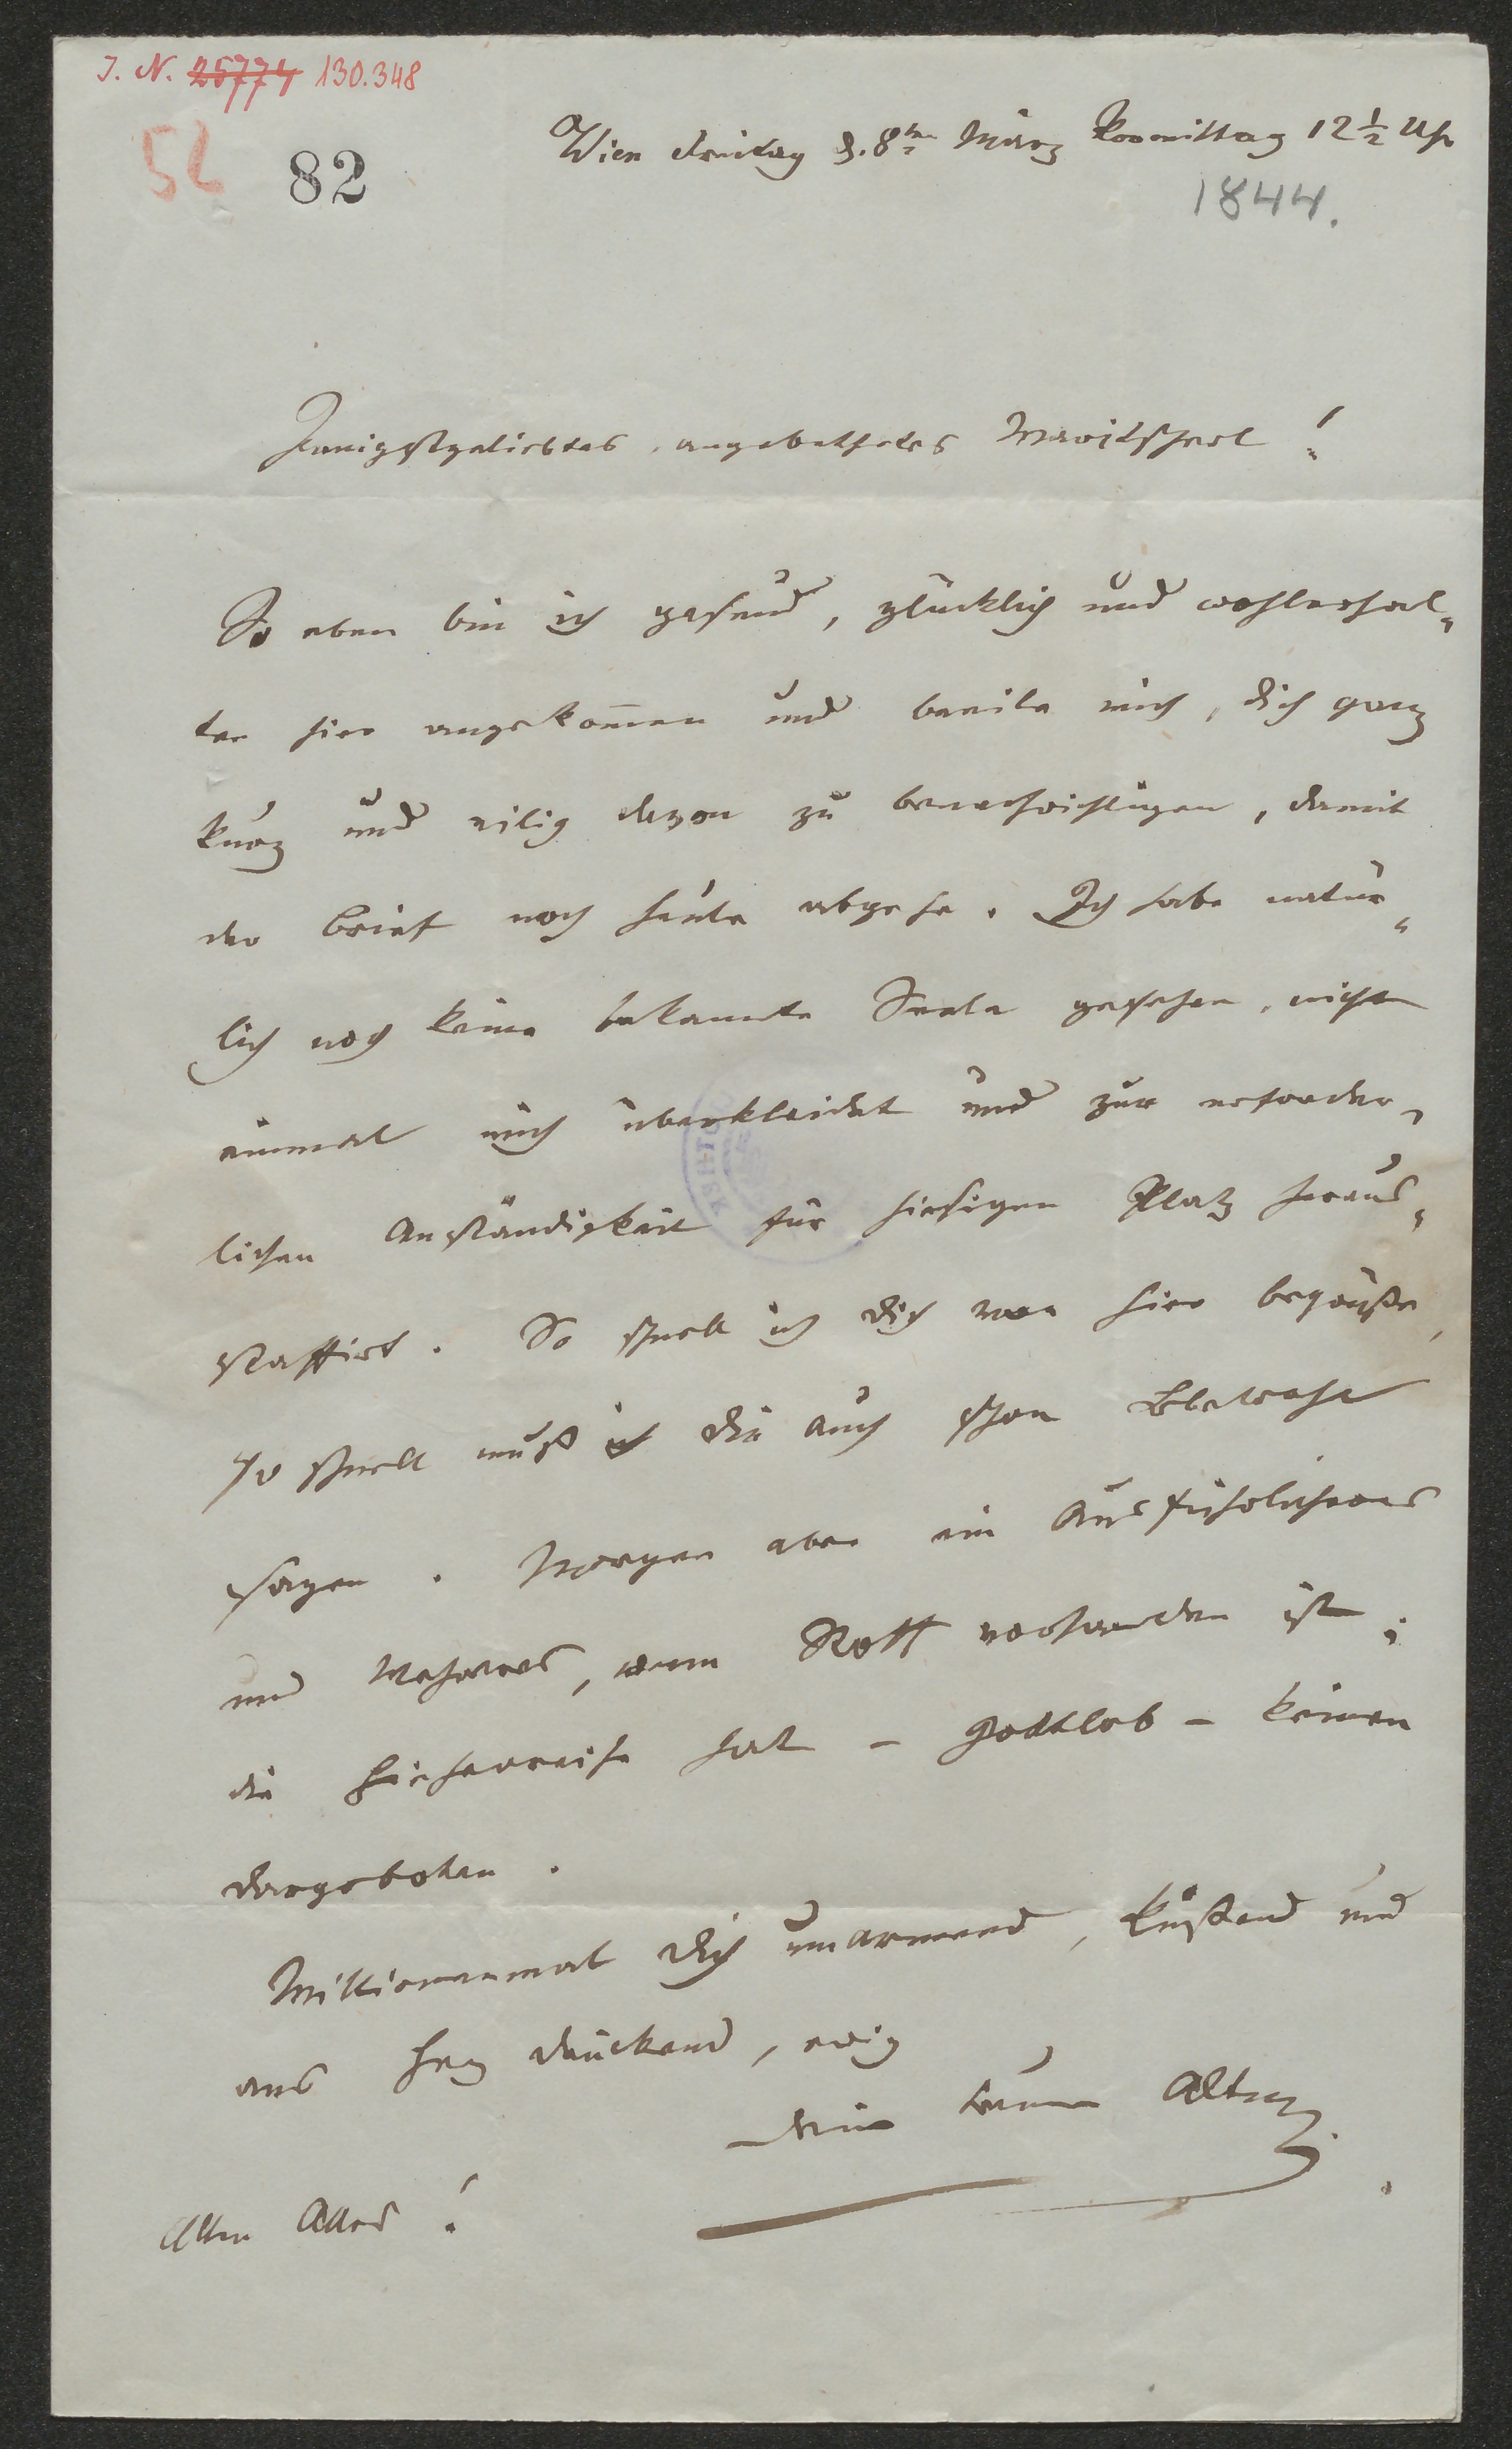 J. N. 25774 130.348
52 82
Wien Freitag d. 8ten März Vormittag 12 ½ Uhr
1844.
Innigstgeliebtes, angebethetes Maritscherl!
So eben bin ich gesund, glücklich und wohlerhal„
ten hier angekom̅en und beeile mich, dich ganz
kurz und eilig davon zu benachrichtigen, damit
der Brief noch heute abgehe. Ich habe natür„
lich noch keine bekannte Seele gesehen, nicht
einmal mich überkleidet und zur erforder„
lichen Anständigkeit für hiesigen Platz heraus„
staffirt. So schnell ich dich von hier begrüße,
so schnell muß ich dir auch schon Lebewohl
sagen. Morgen aber ein Ausführlicheres
und Mehreres, wenn Stoff vorhanden ist;
die Hieherreise hat – gottlob – keinen
dargebothen.
Millionenmal dich umarmend, küßend und
ans Herz drückend, ewig
dein treuer Alter.
Allen Alles!